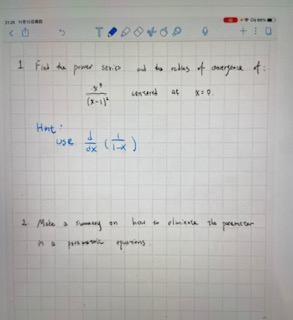 1 Find the power series and the radius of convergence of :
x⁹
(x-1)² centered at x=0.
Hint :
use d/dx ( 1/1-x )
2 Make a summary on how to eliminate the parameter
in a parametric equations.